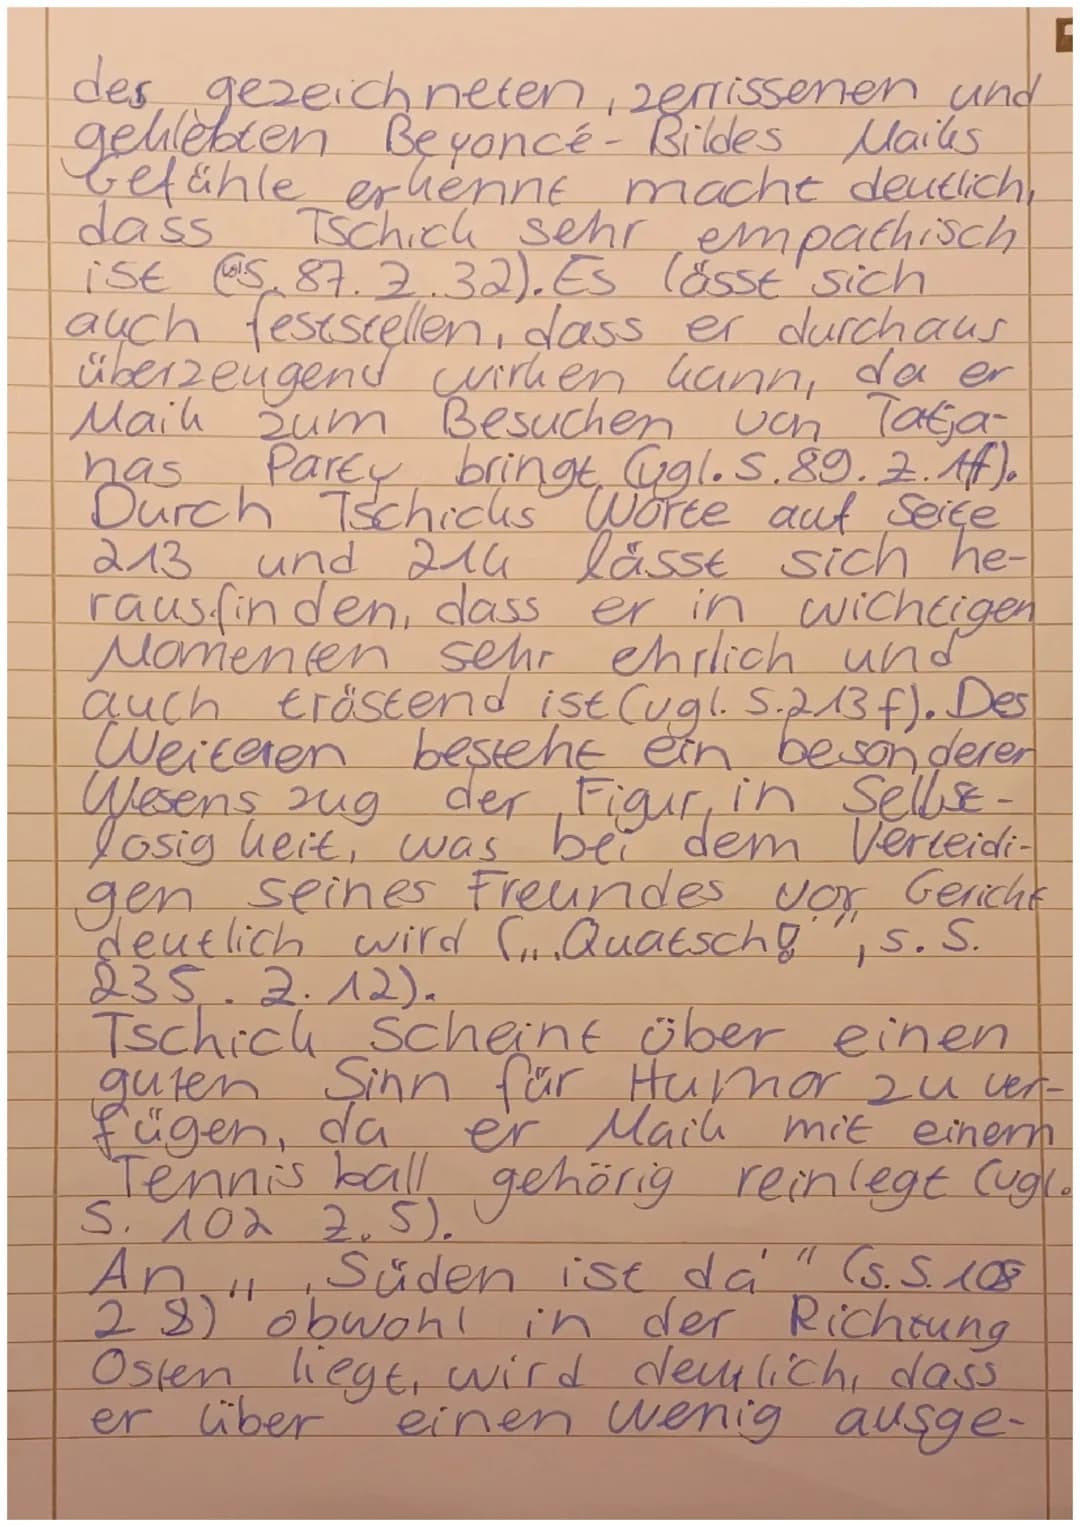 des gezeichneten, zerrissenen und
geklebten Beyoncé-Bildes Maiks
Gefühle erkennt macht deutlich,
dass Tschick sehr empathisch
ist (vgl. S. 87. Z. 32). Es lässt sich
auch feststellen, dass er durchaus
überzeugend wirken kann, da er
Maik zum Besuchen von Tatja-
nas Party bringt (vgl. S. 89. Z. 1ff).
Durch Tschicks Worte auf Seite
213 und 214 lässt sich he-
rausfinden, dass er in wichtigen
Momenten sehr ehrlich und
auch tröstend ist (vgl. S. 213 f). Des
Weiteren besteht ein besonderer
Wesenszug der Figur in Selbst-
losigkeit, was bei dem Verteidi-
gen seines Freundes vor Gericht
deutlich wird („‚Quatsch!'", s. S.
235. Z. 12).
Tschick scheint über einen
guten Sinn für Humor zu ver-
fügen, da er Maik mit einem
Tennisball gehörig reinlegt (vgl.
S. 102 Z. 5).
An „‚Süden ist da'" (s. S. 108
Z 8) obwohl in der Richtung
Osten liegt, wird deutlich, dass
er über einen wenig ausge-